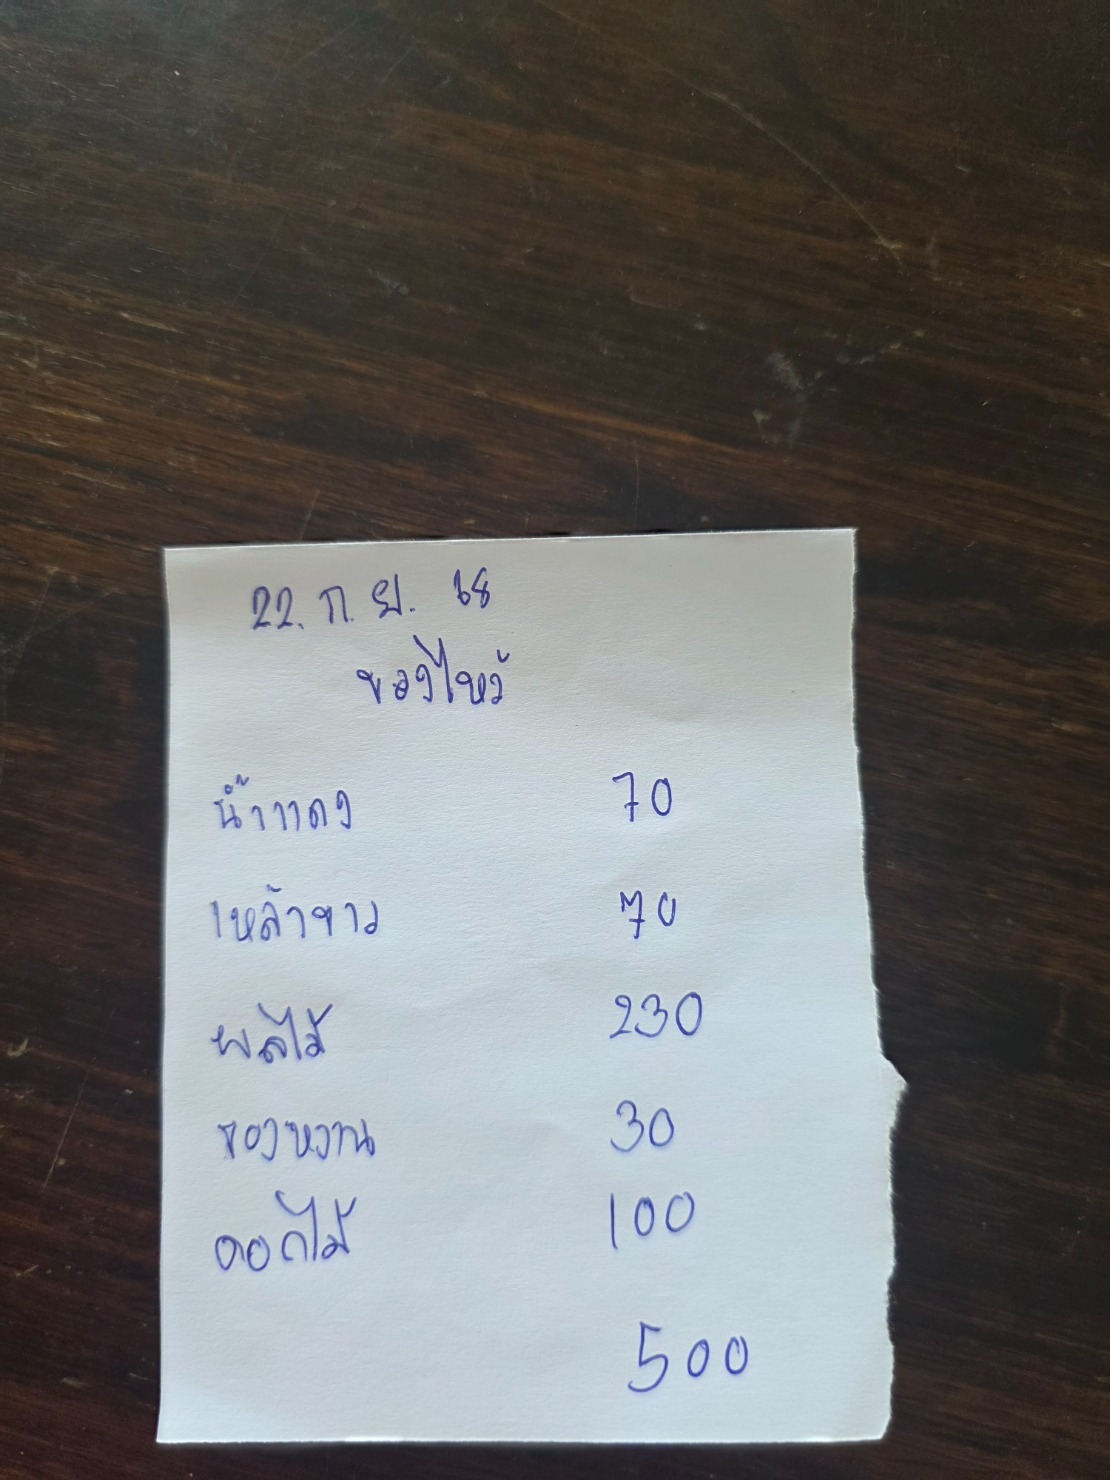 22. ก.ย. 68
ของไหว้
น้ำแดง 70
เหล้าขาว 70
ผลไม้ 230
ของหวาน 30
ดอกไม้ 100
500